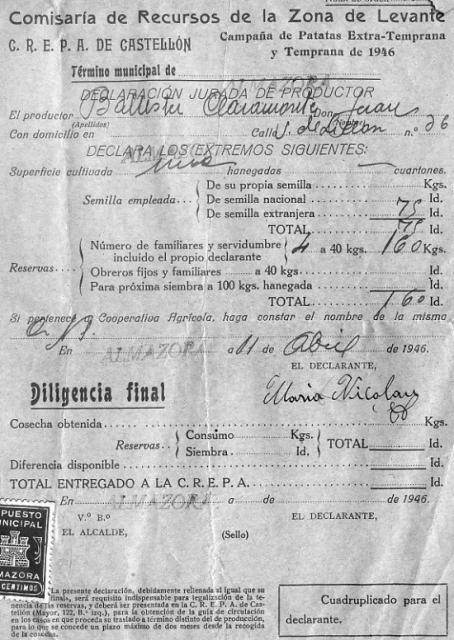 Comisaría de Recursos de la Zona de Levante
C. R. E. P. A. DE CASTELLÓN
Campaña de Patatas Extra-Temprana
y Temprana de 1946
Término municipal de
ALMAZORA
DECLARACIÓN JURADA DE PRODUCTOR
El productor Ballister Claramonte Don Juan
(Apellidos) (Nombre)
Con domicilio en Calle n.º 36
DECLARA LOS EXTREMOS SIGUIENTES:
Superficie cultivada una hanegadas cuartones.
Semilla empleada
De su propia semilla Kgs.
De semilla nacional Id.
De semilla extranjera 75 Id.
TOTAL 75 Id.
Reservas
Número de familiares y servidumbre incluído el propio declarante 4 a 40 kgs. 160 Kgs.
Obreros fijos y familiares a 40 kgs. Id.
Para próxima siembra a 100 kgs. hanegada Id.
TOTAL 160 Id.
Si pertenece a Cooperativa Agrícola, haga constar el nombre de la misma
En ALMAZORA a 11 de Abril de 1946.
EL DECLARANTE,
Diligencia final
Maria Nicolau
Cosecha obtenida Kgs.
Reservas
Consumo Kgs.
Siembra Id.
TOTAL Id.
Diferencia disponible Id.
TOTAL ENTREGADO A LA C. R. E. P. A. Id.
En ALMAZORA a de de 1946.
V.º B.º
EL DECLARANTE,
EL ALCALDE,
(Sello)
PUESTO
UNICIPAL
MAZORA
CENTIMOS
La presente declaración, debidamente rellenada al igual que su
final», será requisito indispensable para legalización de la te-
nencia de las reservas, y deberá ser presentada en la C. R. E. P. A. de Cas-
tellón (Mayor, 122, B.º izq.), para la obtención de la guía de circulación
en los casos en que proceda su traslado a término distinto del de producción,
para lo que se concede un plazo máximo de dos meses desde la recogida
de la cosecha.
Cuadruplicado para el
declarante.